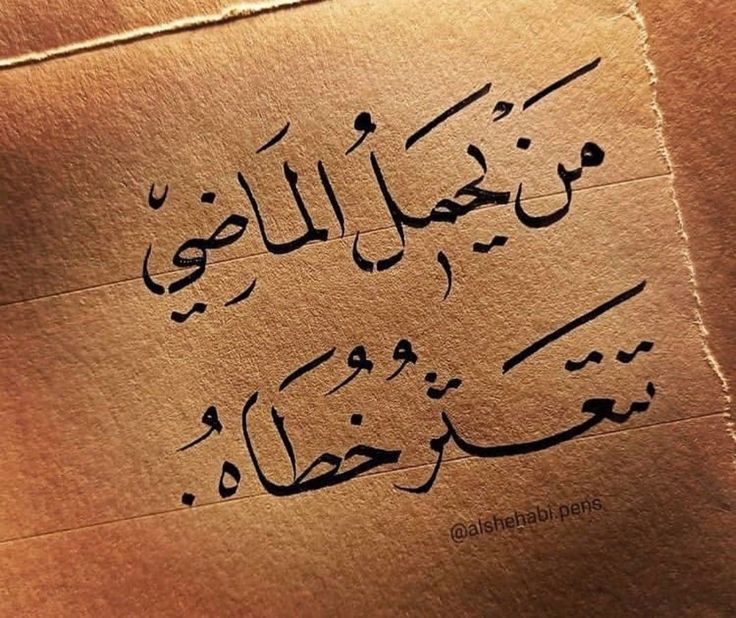 مَنْ يَحمِلُ المَاضِيّ
تتعَثرُ خُطَاهُ.
@alshehabi.pens